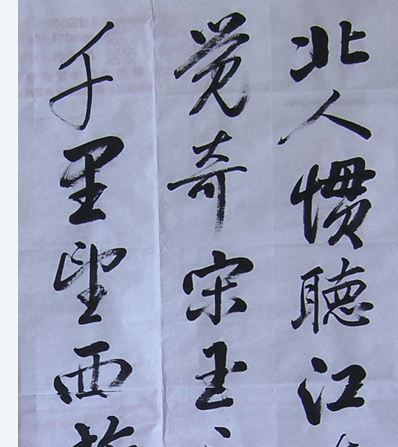 北人惯聴江
觉奇宋玉
千里望西